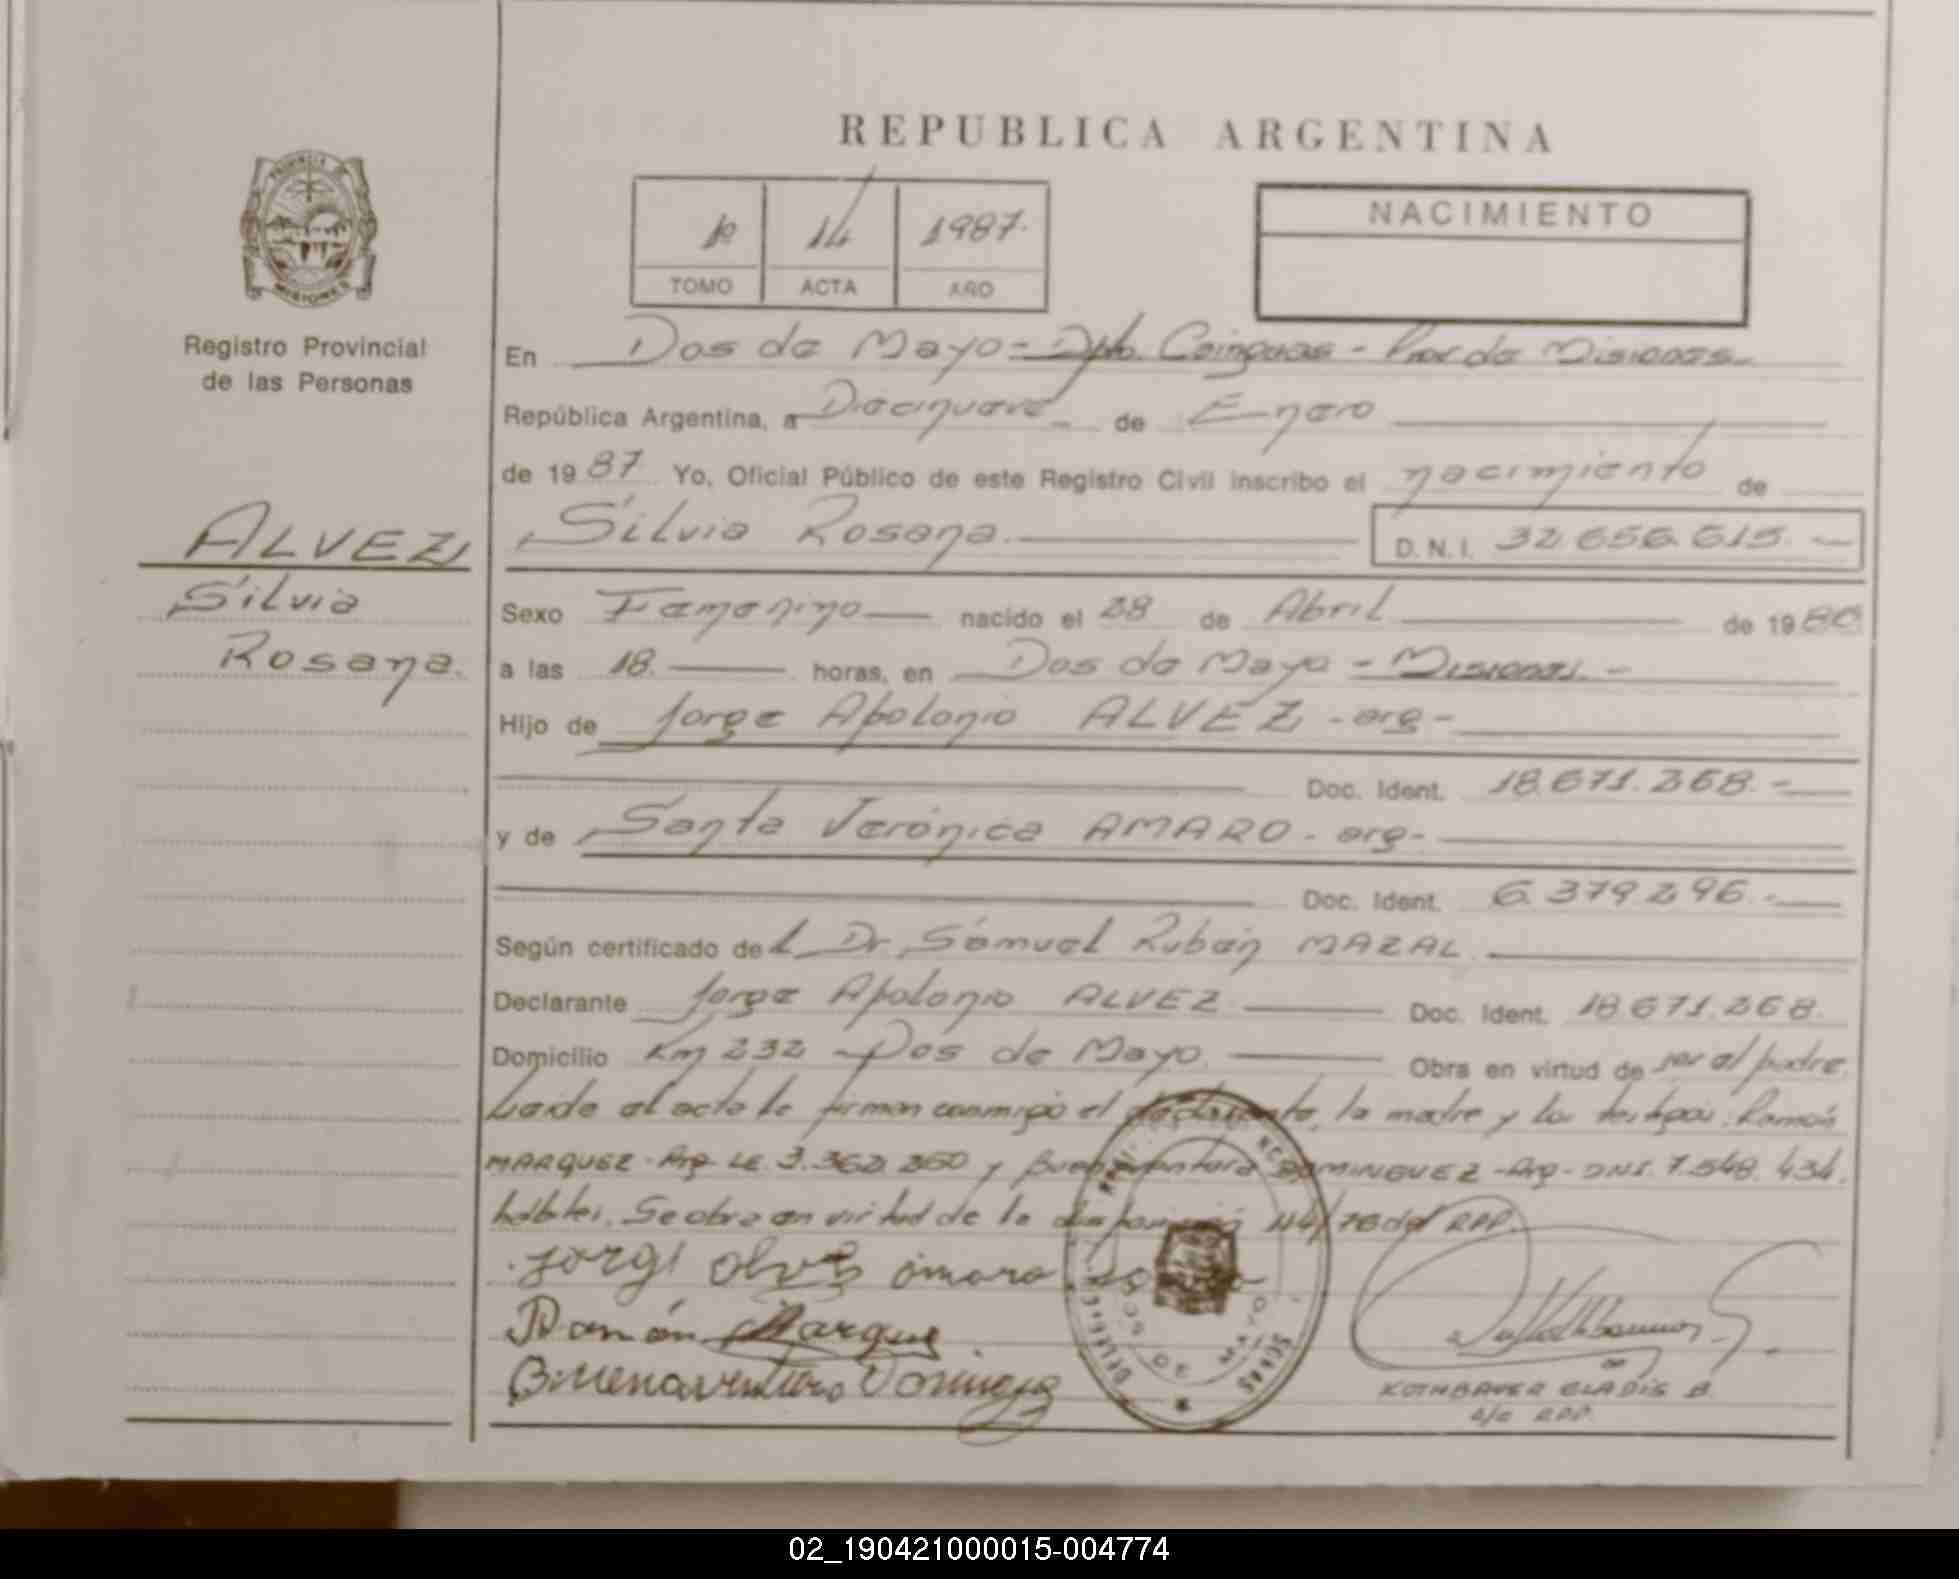 REPUBLICA ARGENTINA
PROVINCIA DE
MISIONES
Registro Provincial
de las Personas
1º 14 1987.
TOMO ACTA AÑO
NACIMIENTO
En Dos de Mayo - Dpto. Cainguas - Prov de Misiones
República Argentina, a Diecinueve de Enero
de 1987 Yo, Oficial Público de este Registro Civil inscribo el nacimiento de
ALVEZ, Silvia Rosana. D.N.I. 32.656.615.-
Silvia
Rosana.
Sexo Femenino nacido el 28 de Abril de 1980
a las 18. horas, en Dos de Mayo - Misiones.-
Hijo de Jorge Apolonio ALVEZ - arg-
Doc. Ident. 18.671.268.-
y de Santa Verónica AMARO - arg-
Doc. Ident. 6.379.296.-
Según certificado del Dr. Samuel Rubén MAZAL
Declarante Jorge Apolonio ALVEZ Doc. Ident. 18.671.268.
Domicilio Km 232 - Dos de Mayo. Obra en virtud de ser el padre.
Leida el acta la firman conmigo el declarante, la madre y los testigos: Ramón
MARQUEZ - Arg - LE. 3.362.260 y Buenaventura DOMINGUEZ - Arg - DNI. 7.548.434.
hábiles. Se obra en virtud de la disposición 44/76 del RPP.
Jorge Alves amaro
Ramón Marques
Buenaventura Dominguez
DOS DE MAYO
KOTHBAUER GLADIS B.
a/c RPP.
02_190421000015-004774